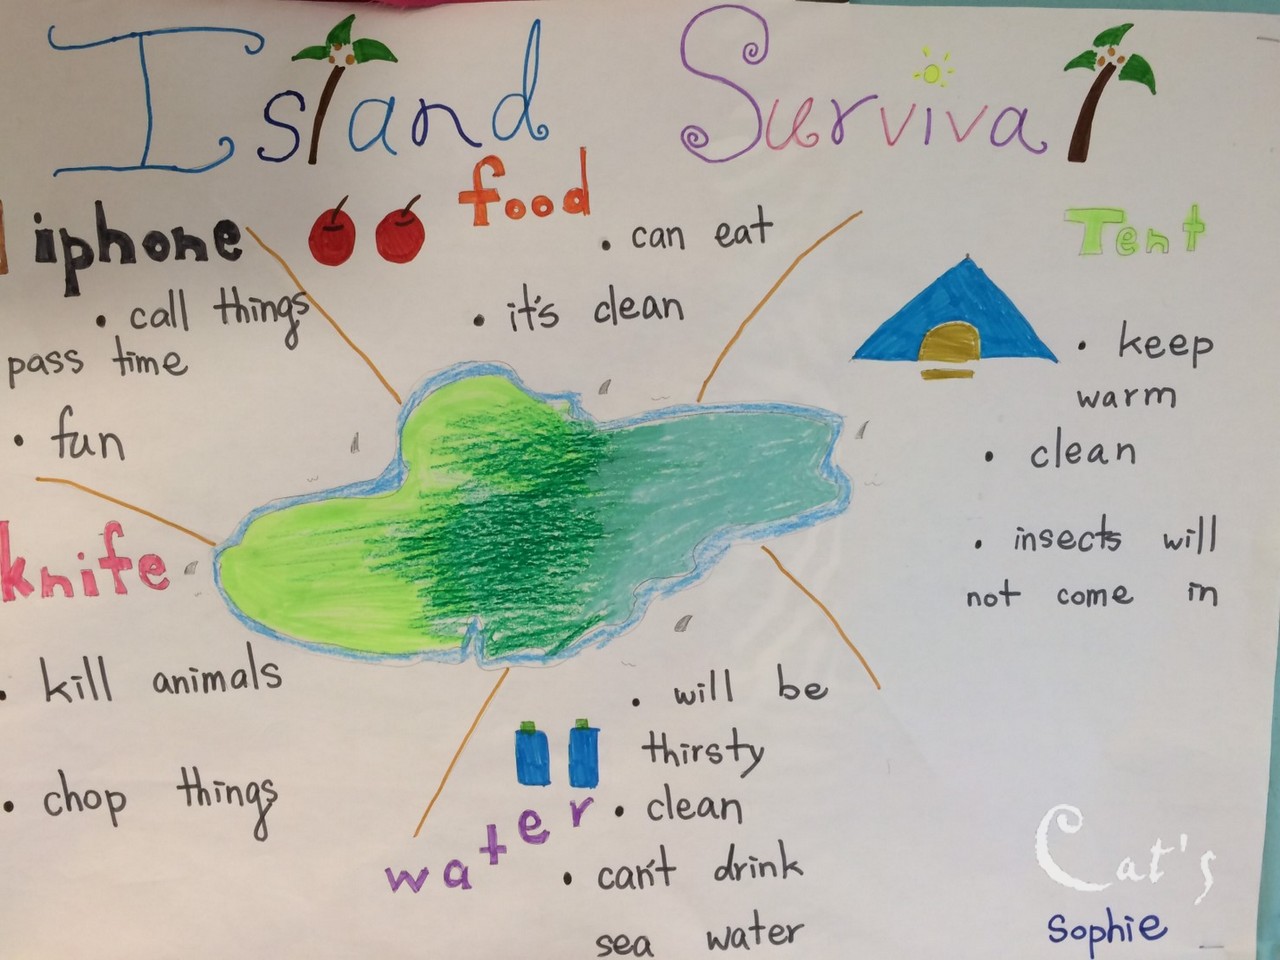 Island Survival
iphone
• call things
pass time
• fun
food
• can eat
• it's clean
Tent
• keep
warm
• clean
• insects will
not come in
knife
• kill animals
• chop things
water
• will be
thirsty
• clean
• can't drink
sea water
Cat's
Sophie